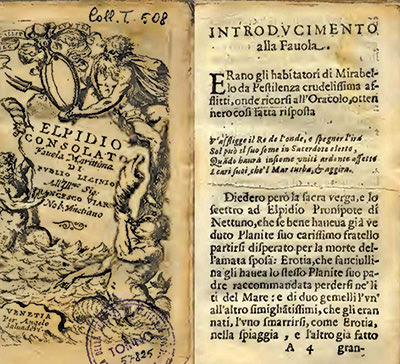 Coll. T. 508
ELPIDIO
CONSOLATO
Fauola Marittima
DI
PVBLIO LICINIO
Sig.
FRANCESCO
Nob.
VENETIA
Per Angelo
Saluadori
TORINO
INTRODVCIMENTO
alla Fauola.
ERano gli habitatori di Mirabel-
lo da Pestilenza crudelissima af-
flitti, onde ricorsi all'Oracolo, otten
nero così fatta risposta
V'afflige il Re de l'onde, e spegner l'ira
Sol può il suo seme in Sacerdote eletto,
Quãdo haurà insieme vniti ardente affetto
I cari suoi, che'l Mar turba, & aggira.
Diedero però la sacra verga, e lo
scettro ad Elpidio Pronipote di
Nettuno, che se bene haueua già ve
duto Planite suo carissimo fratello
partirsi disperato per la morte del-
l'amata sposa: Erotia, che fanciulli-
na gli hauea lo stesso Planite suo pa-
dre raccommandata perdersi ne' li
ti del Mare: e di due gemelli l'vn'
all'altro simiglhãtissimi, che gli eran
nati, l'vno smarrirsi, come Erotia,
nella spiaggia, e l'altro già fatto
A 4 gran-